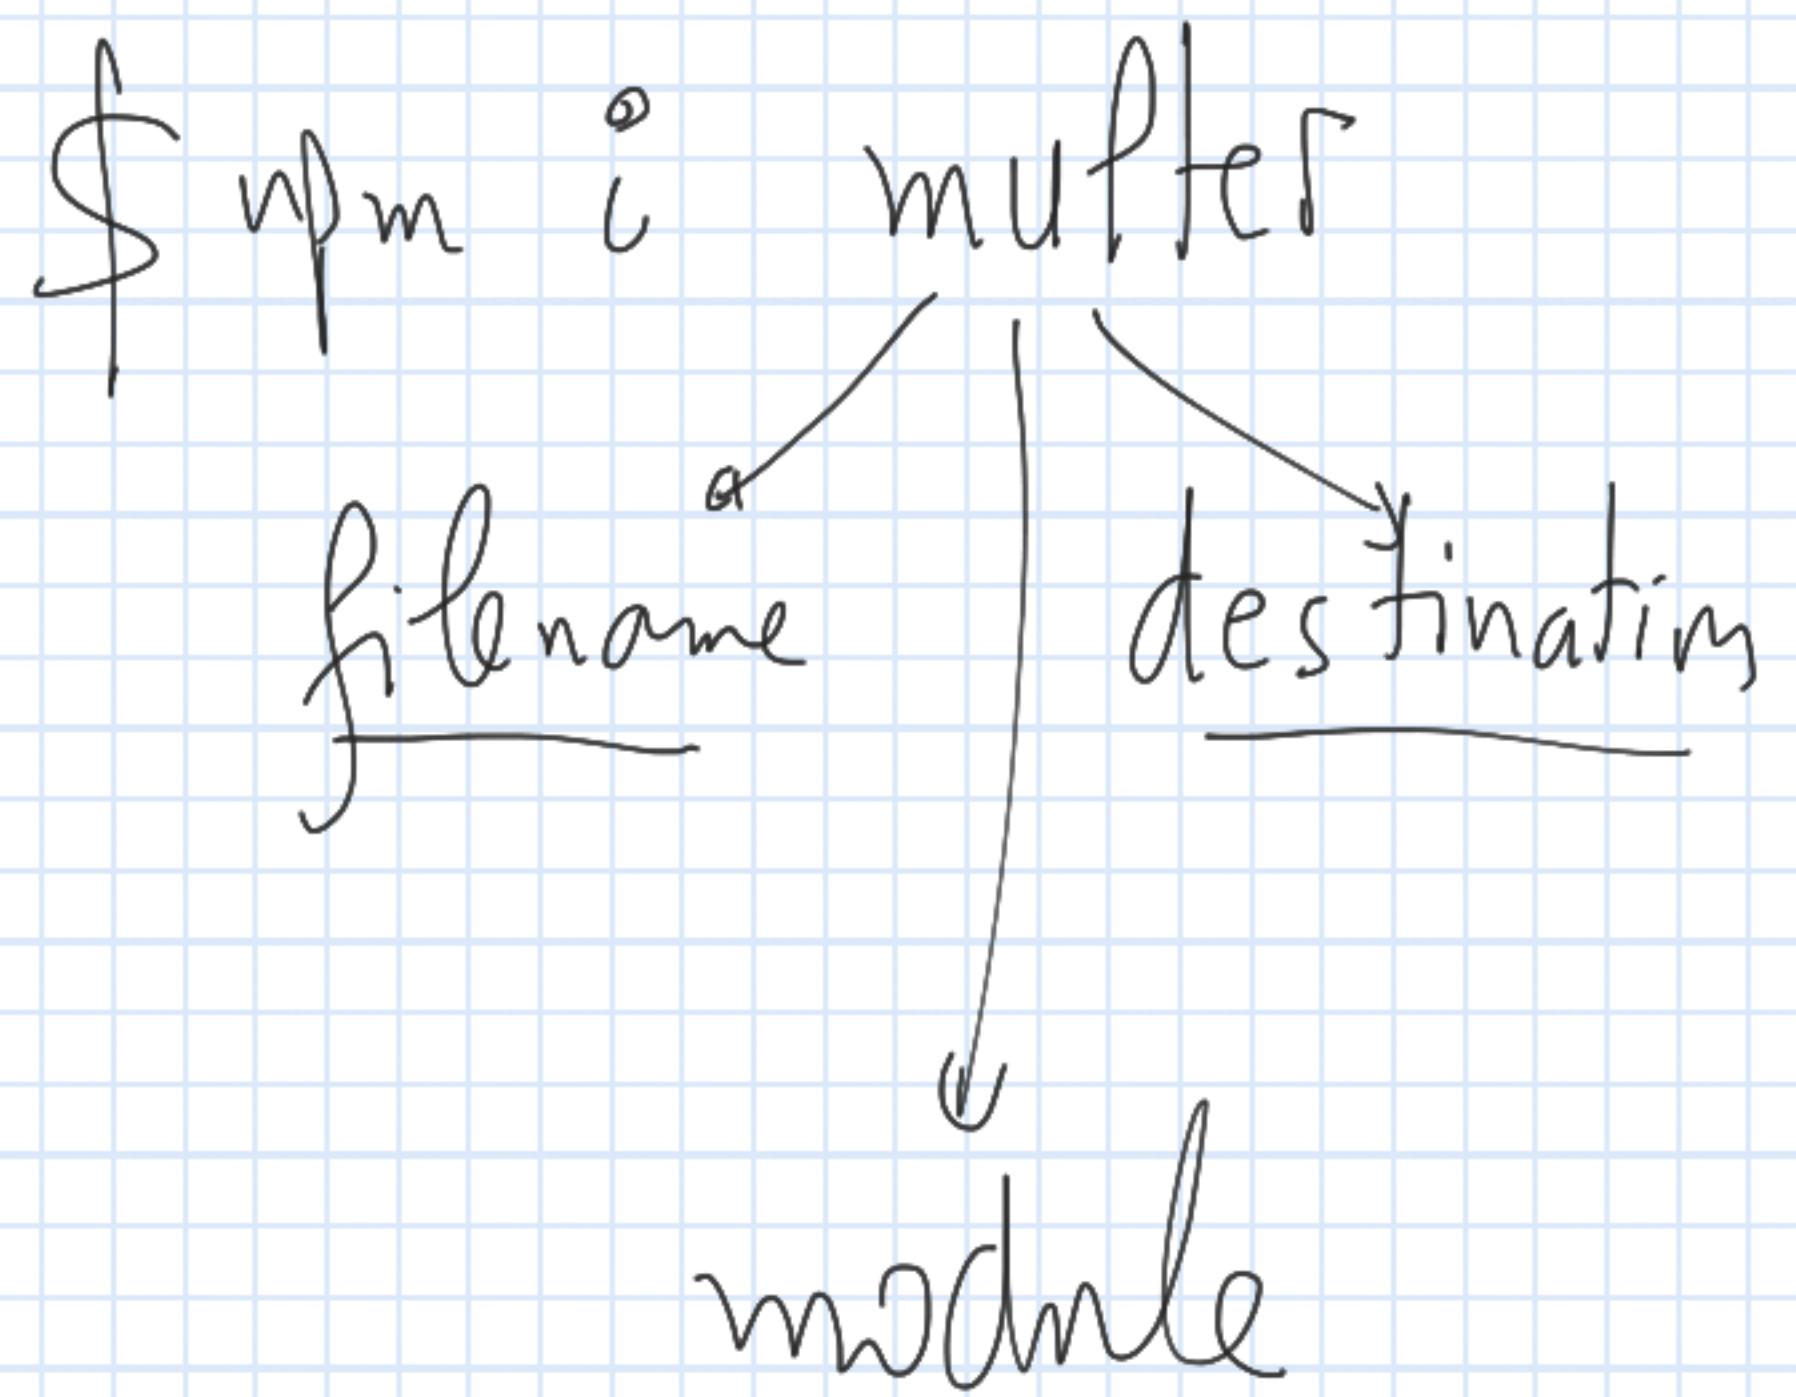 $ npm i multer
filename destination
module